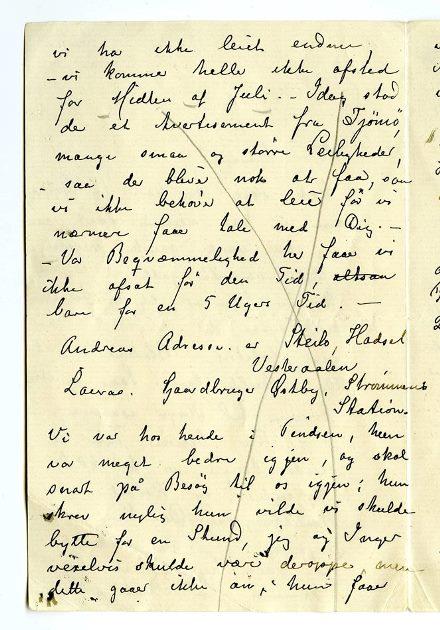 vi har ikke leiet endnu,
– vi kommer heller ikke afsted
før Midten af Juli. – Idag stod
der et Avertissement fra Tjømø,
mange smaa og større Leiligheder,
– saa der blir nok at faa, saa
vi ikke behøver at leie før vi
nærmer faar tale med Dig. –
– Vor Beqvæmmelighed her faar vi
ikke afsat før den Tid, altsaa
bare for en 5 Ugers Tid. –
Andreas Adresse er Steilo, Hadsel
Vesteraalen,
Lauras. Gaardbruger Østby, Strømmens
Station.
Vi var hos hende i Pindsen, hun
var meget bedre igjen, og skal
snart på Besøg til os igjen; hun
skrev nylig hun vilde vi skulde
bytte for en Stund, jeg og Inger
vexelvis skulde være deroppe, men
dette gaar ikke an, hun faar